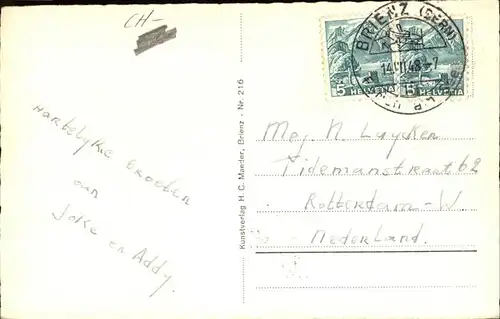 CH-
Hartelyke Groeten
van
Joke en Addy.
Kunstverlag H. C. Maeder, Brienz - Nr. 216
BRIENZ (BERN)
5 HELVETIA
15 HELVETIA
Mej. N. Luycken
Tidemanstraat 62
Rotterdam - W.
Nederland.